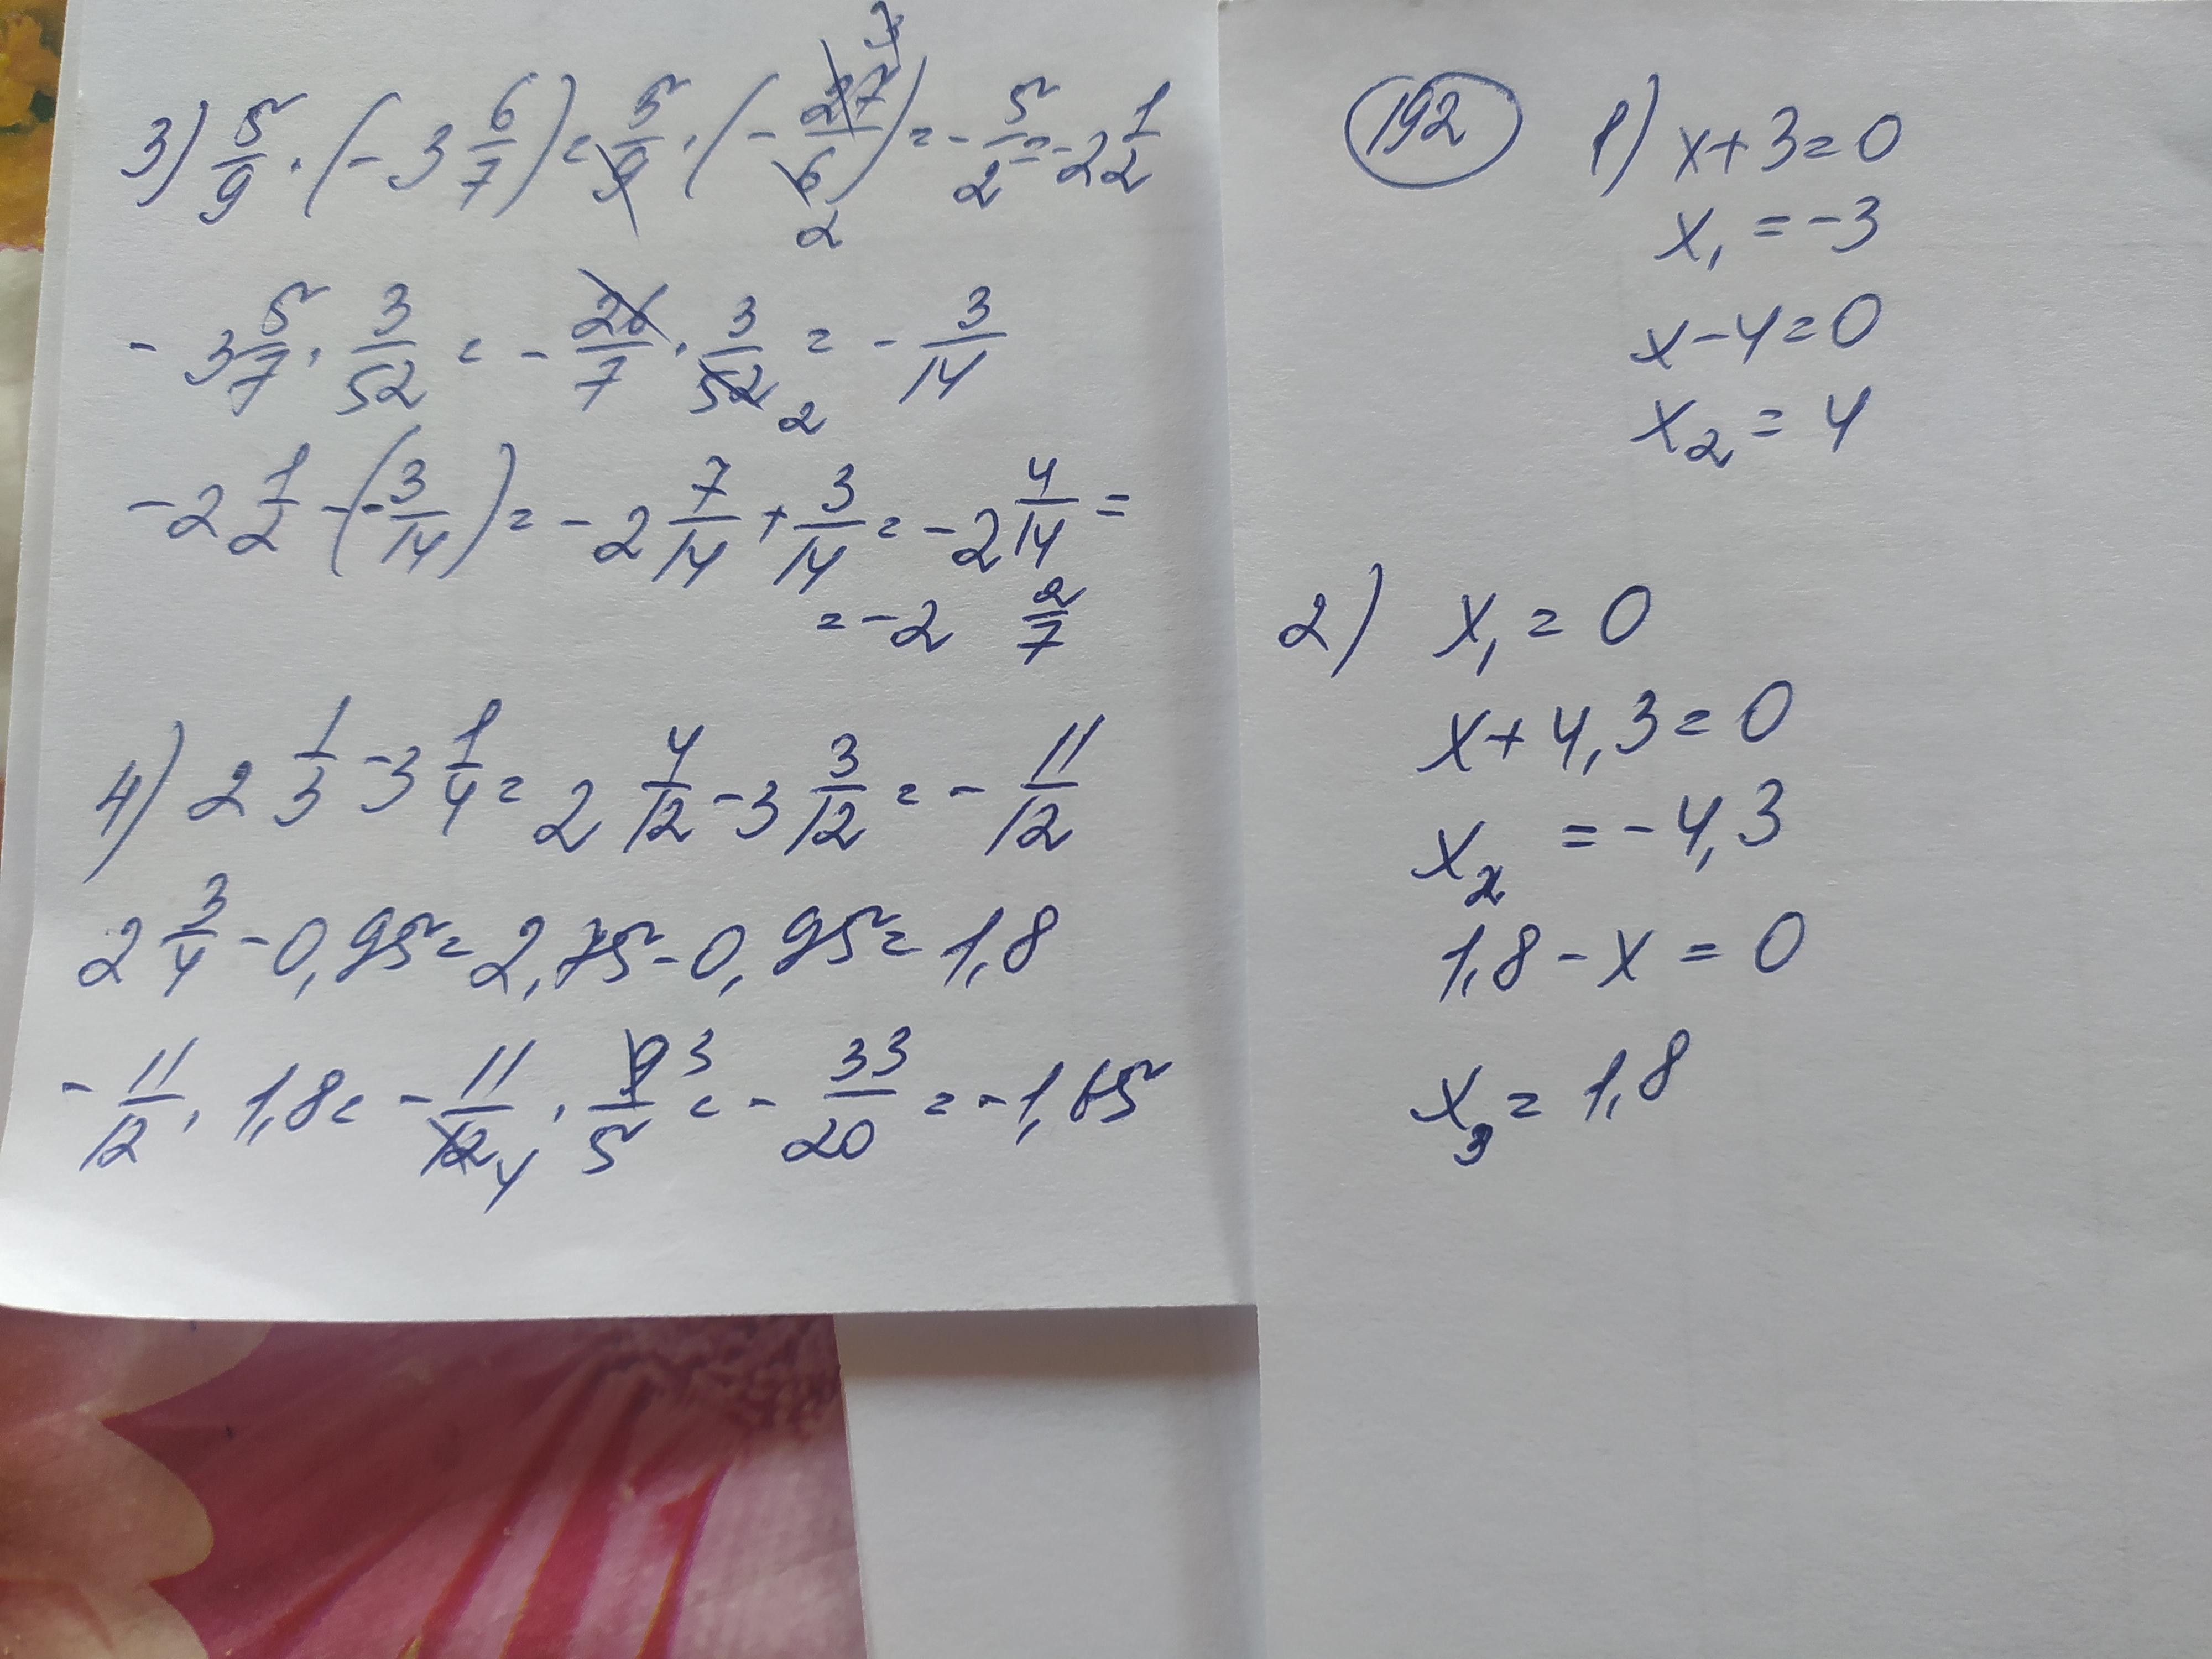 3) 5/9 · (-3 6/7) = 5/9 · (-27/6) = -5/2 = -2 1/2
3
2
-3 5/7 · 3/52 = -26/7 · 3/52 = -3/14
2
-2 1/2 - (-3/14) = -2 7/14 + 3/14 = -2 4/14 =
= -2 2/7
4) 2 1/3 - 3 1/4 = 2 4/12 - 3 3/12 = -11/12
2 3/4 - 0,95 = 2,75 - 0,95 = 1,8
-11/12 · 1,8 = -11/12 · 9/5 = -33/20 = -1,65
3
4
192
1) x + 3 = 0
x1 = -3
x - 4 = 0
x2 = 4
2) x1 = 0
x + 4,3 = 0
x2 = -4,3
1,8 - x = 0
x3 = 1,8